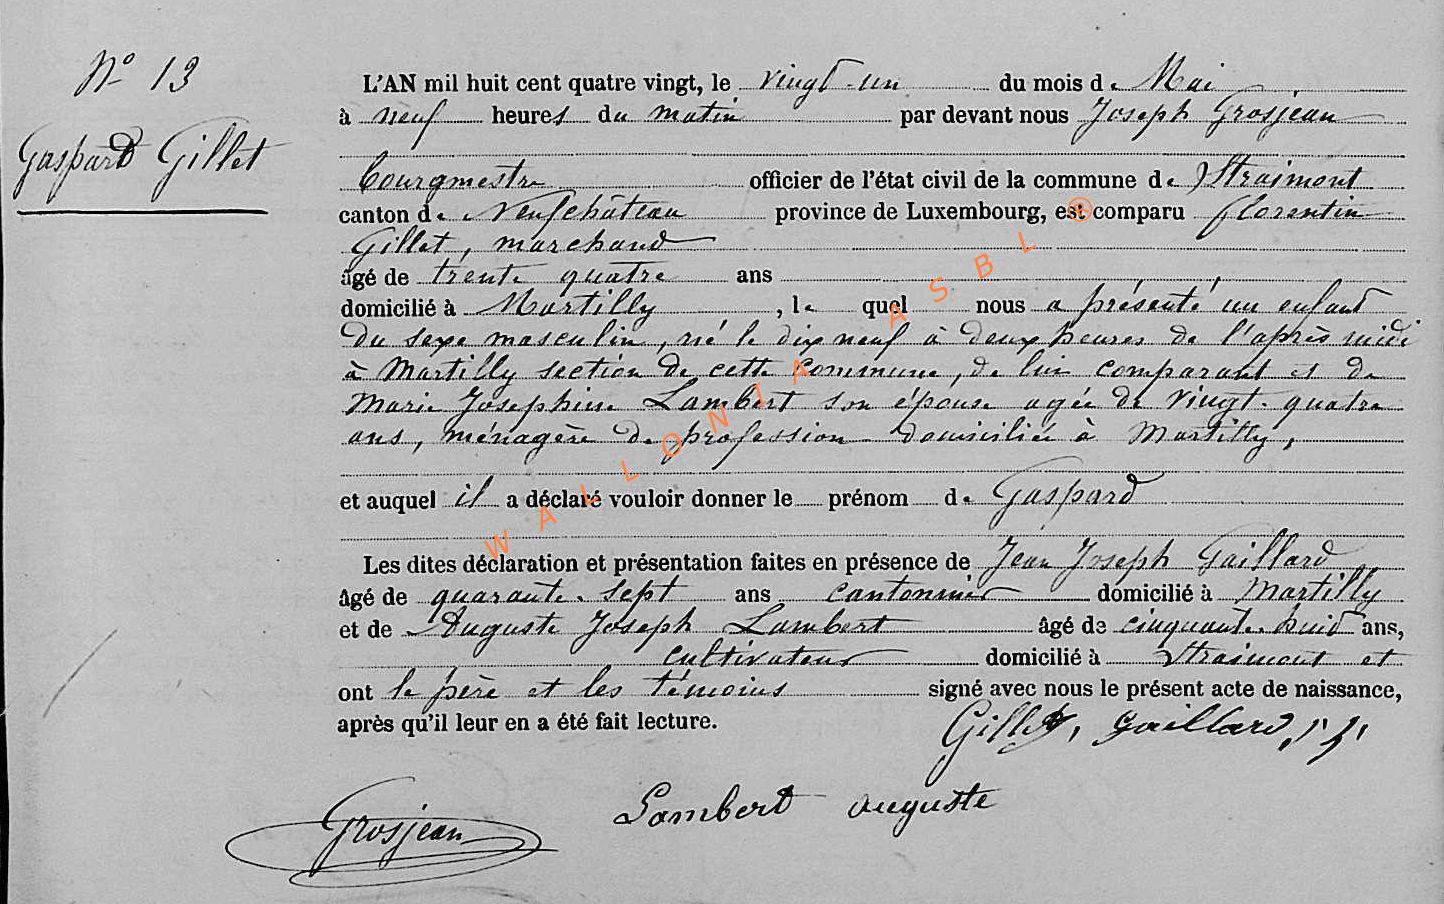 N° 13
Gaspard Gillet
L'AN mil huit cent quatre vingt, le vingt-un du mois de Mai
à neuf heures du matin par devant nous Joseph Grosjean
bourgmestre officier de l'état civil de la commune de Straimont
canton de Neufchâteau province de Luxembourg, est comparu florentin
Gillet, marchand
âgé de trente quatre ans
domicilié à Martilly, le quel nous a présenté un enfant
du sexe masculin, né le dix neuf à deux heures de l'après midi
à Martilly section de cette commune, de lui comparant et de
Marie Josephine Lambert son épouse agée de vingt-quatre
ans, ménagère de profession domiciliée à Martilly,
et auquel il a déclaré vouloir donner le prénom de Gaspard
Les dites déclaration et présentation faites en présence de Jean Joseph Gaillard
âgé de quarante-sept ans cantonnier domicilié à Martilly
et de Auguste Joseph Lambert âgé de cinquante-huit ans,
cultivateur domicilié à Straimont et
ont le père et les témoins signé avec nous le présent acte de naissance,
après qu'il leur en a été fait lecture.
Gillet, Gaillard, j j
Grosjean Lambert auguste
WALLONIA ASBL ®